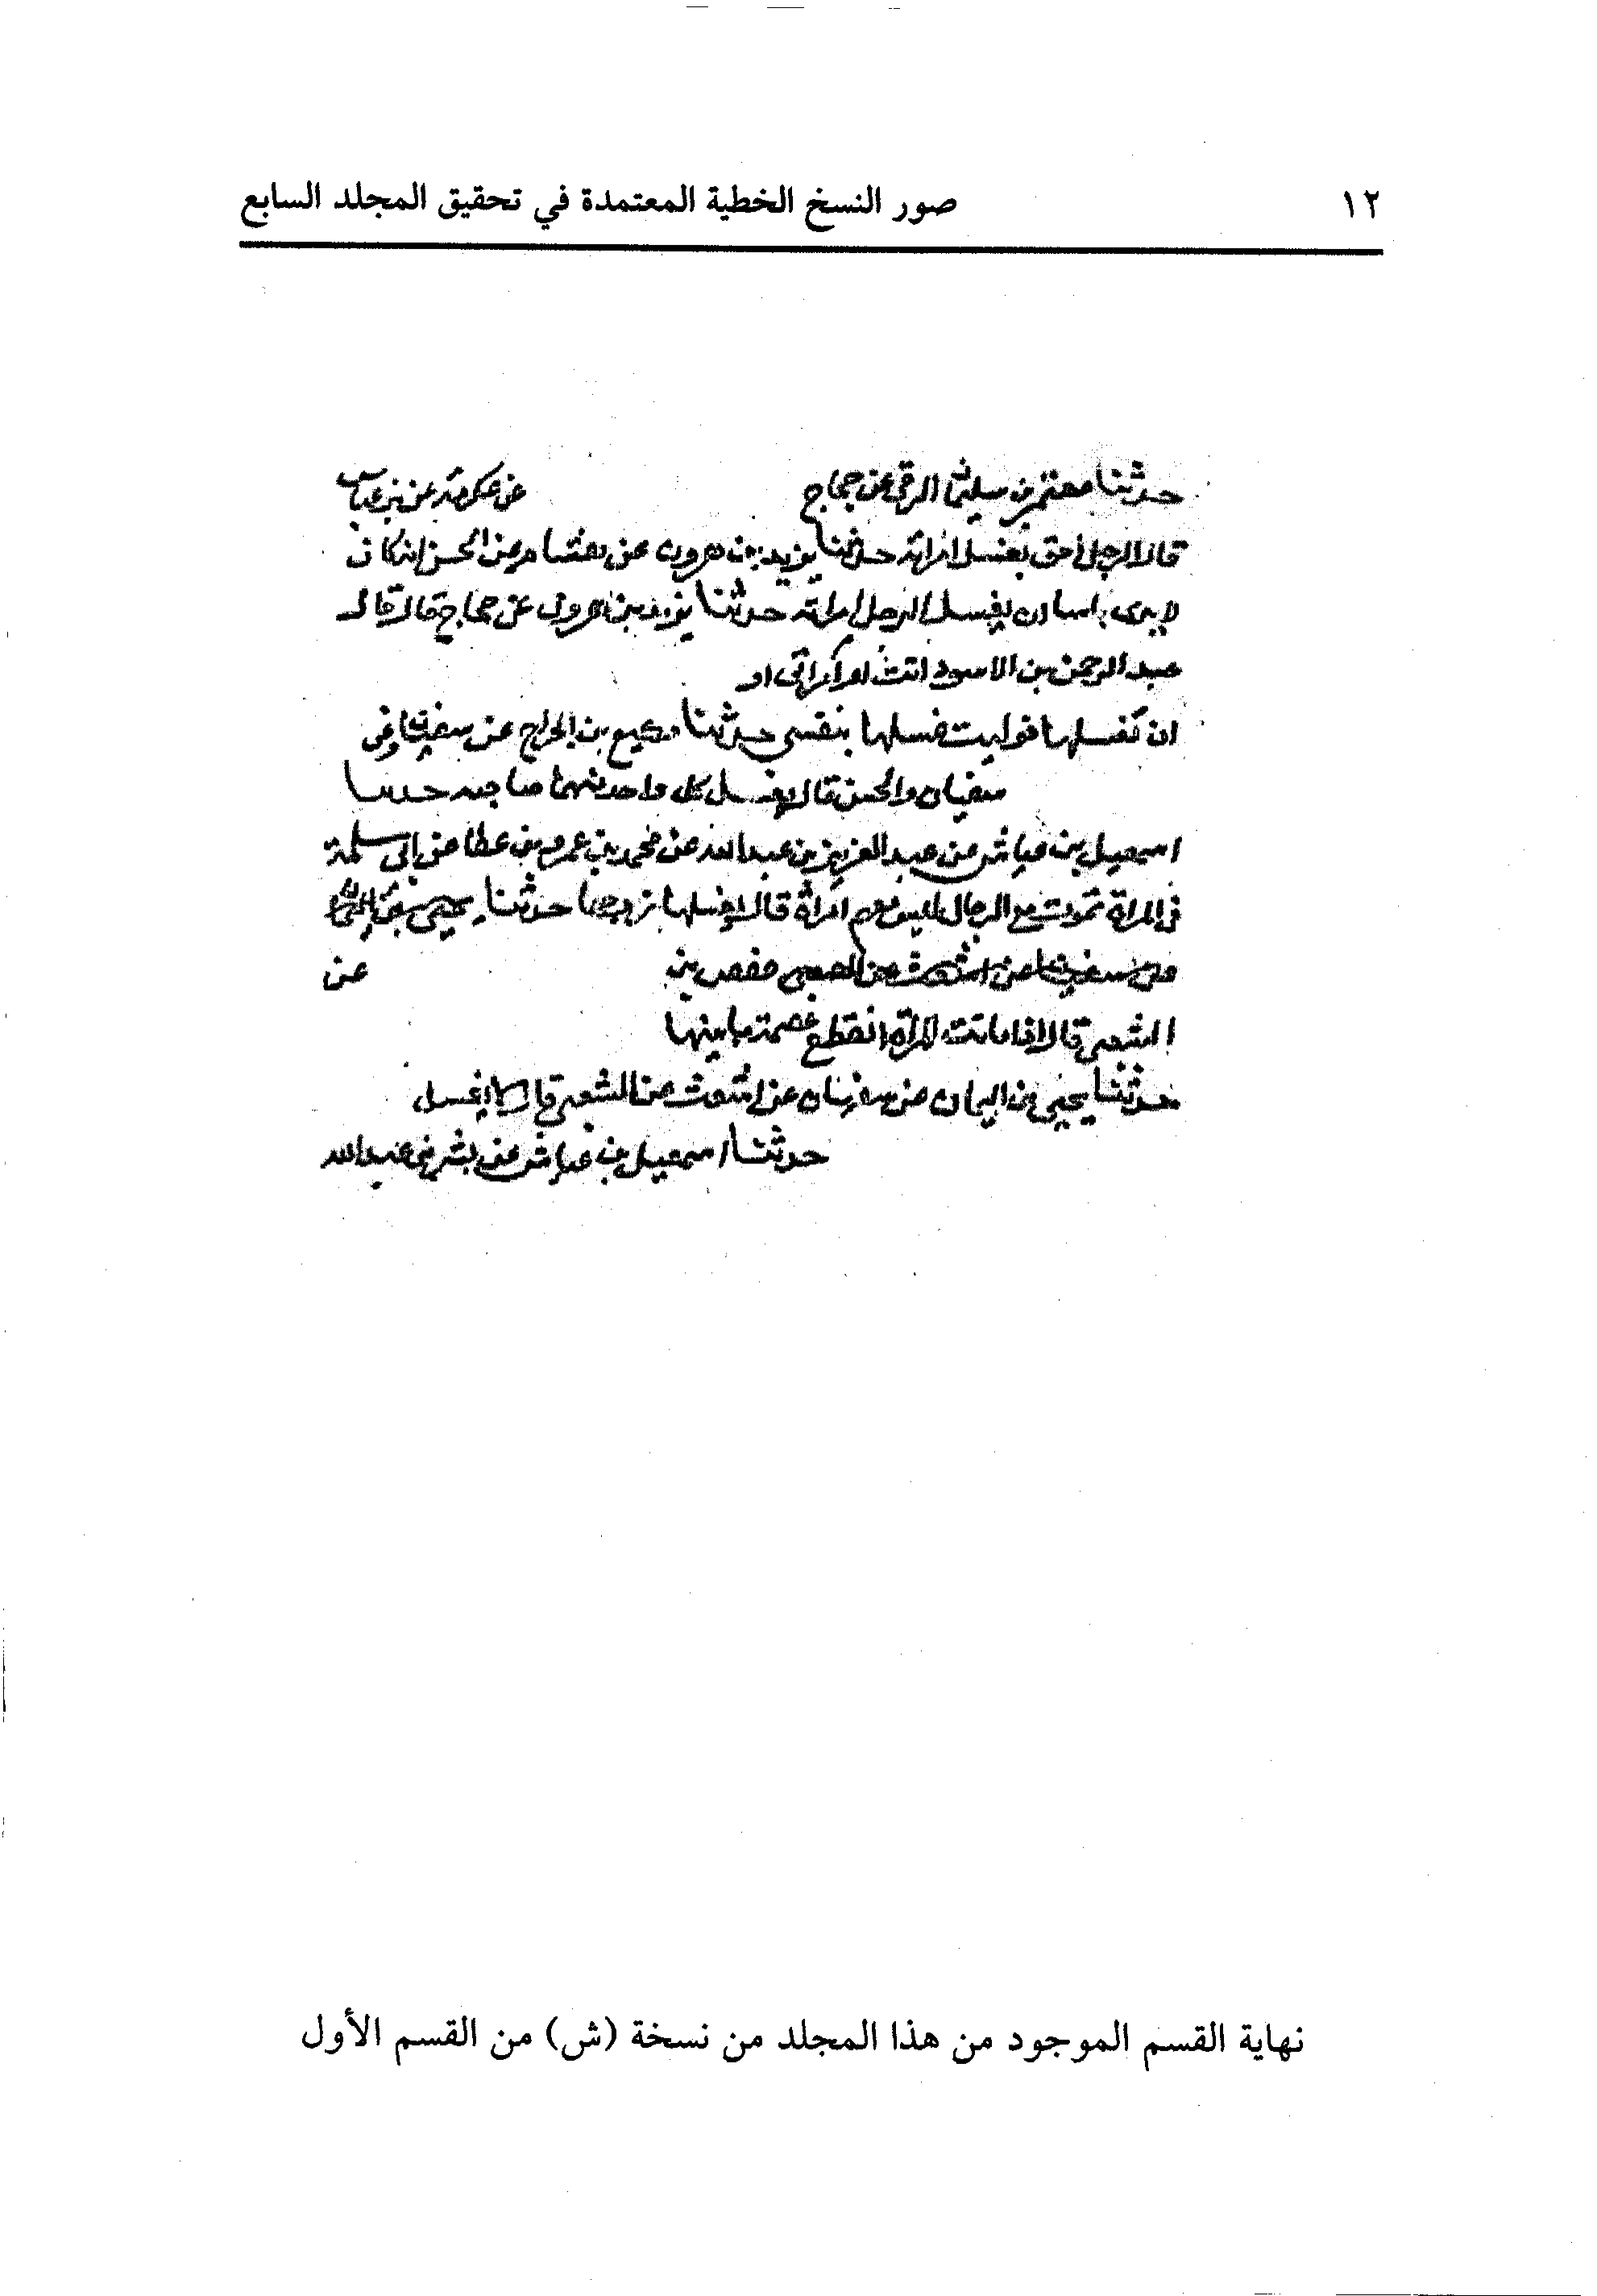 ١٢ صور النسخ الخطية المعتمدة في تحقيق المجلد السابع
حدثنا معتمر بن سليمان الرقي عن حجاج عن عكرمة عن بن عباس
قال الرجل احق بغسل امراته حدثنا يزيد بن هرون عن هشام عن الحسن انه كان
لا يرى باسا ان يغسل الرجل امراته حدثنا يزيد بن هرون عن حجاج قال قال
عبد الرحمن بن الاسود
ان تغسلها فوليت غسلها بنفسي حدثنا وكيع بن الجراح عن
سفيان والحسن قال يغسل كل واحد منهما صاحبه حدثنا
اسمعيل بن عياش عن عبد العزيز بن عبد الله عن محمد بن عمرو بن عطا عن ابي سلمة
في المراة تموت مع الرجال ليس معهم امرأة قال يغسلها زوجها حدثنا يحيى
عن اشعث عن حفص بن عن
الشعبي قال اذا ماتت المرأة انقطع عصمة ما بينها
حدثنا يحيى بن اليمان عن سفيان عن اشعث عن الشعبي قال لا يغسل
حدثنا اسمعيل بن عياش عن بشر بن عبد الله
نهاية القسم الموجود من هذا المجلد من نسخة (ش) من القسم الأول